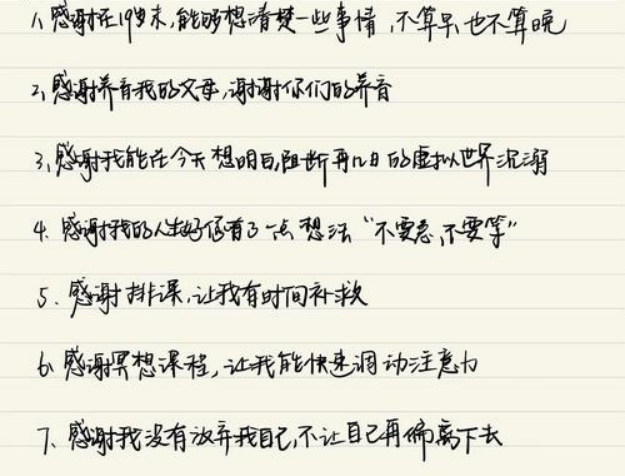 1、感谢在19岁末,能够想清楚一些事情,不算早也不算晚
2、感谢养育我的父母,谢谢你们的养育
3、感谢我能在今天想明白,阻断再几日的虚拟世界沉溺
4、感谢我的人生好像有了一点想法“不要急、不要等”
5、感谢排课,让我有时间补救
6、感谢冥想课程,让我能快速调动注意力
7、感谢我没有放弃我自己,不让自己再偏离下去